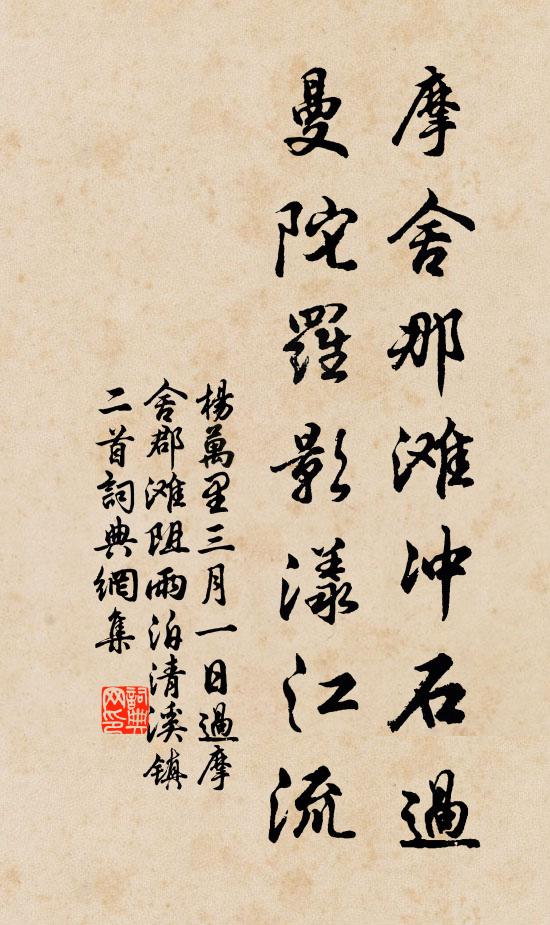 摩舍那滩冲石過
曼陀羅影漾江流
楊萬里三月一日過摩
舍郡滩阻雨泊清溪镇
二首詞典網集
詞典
网印